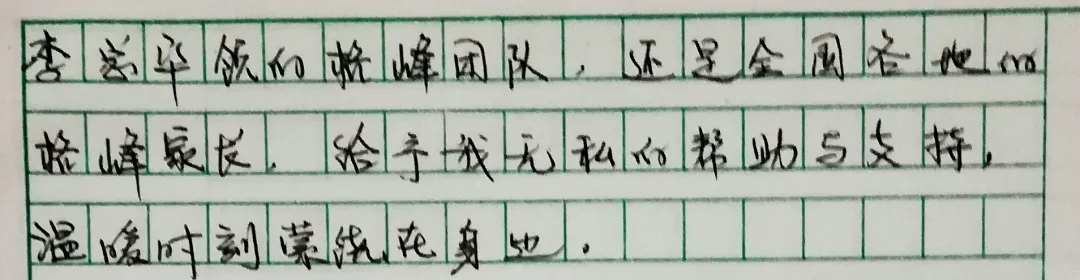 李宗华领的格峰团队，还是全国各地的
格峰家长，给予我无私的帮助与支持，
温暖时刻萦绕在身边。